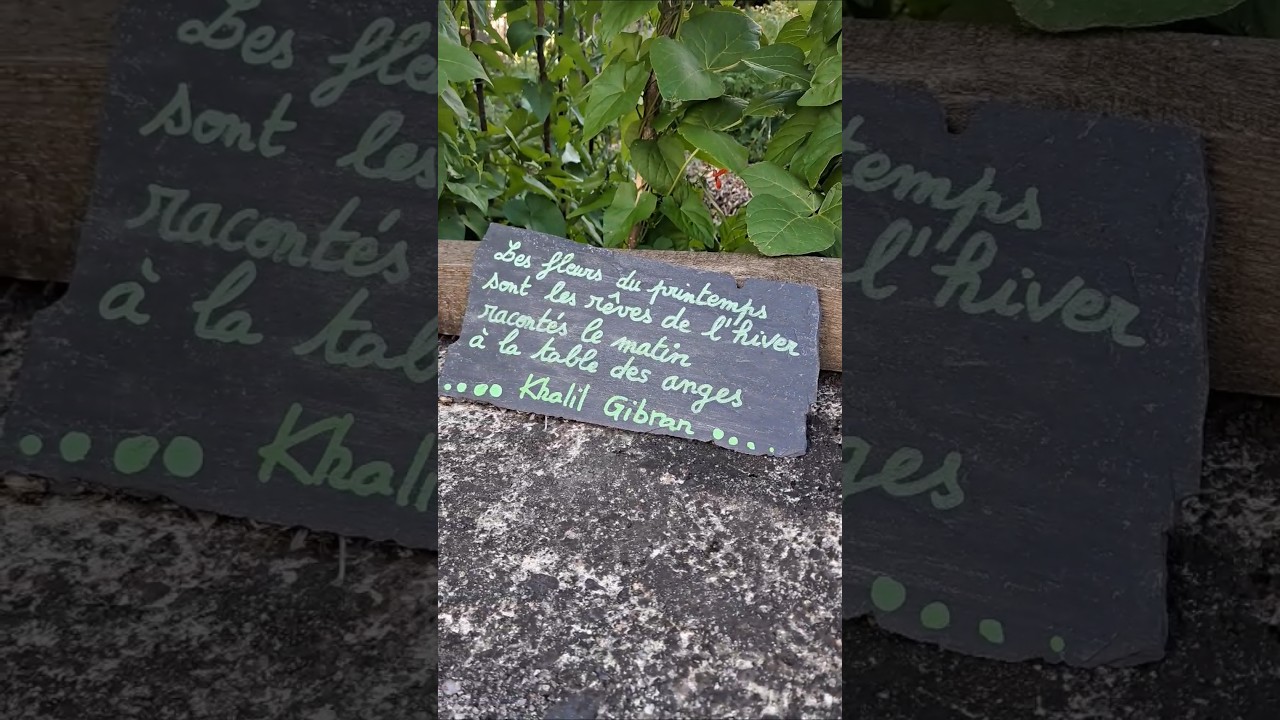 Les fleurs du printemps
sont les rêves de l'hiver
racontés le matin
à la table des anges
.... Khalil Gibran ....